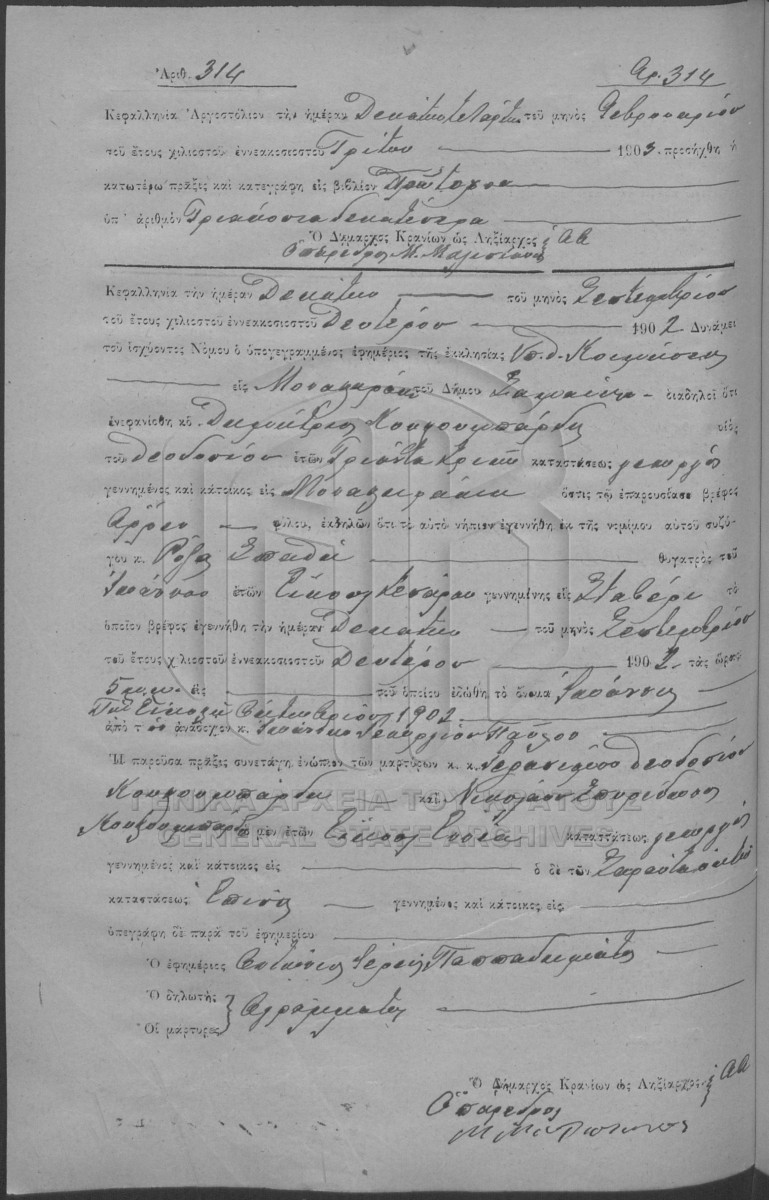 Ἀριθ. 314 Αρ. 314
Κεφαλληνία Ἀργοστόλιον τὴν ἡμέραν Δεκάτην τετάρτην τοῦ μηνὸς Φεβρουαρίου
τοῦ ἔτους χιλιοστοῦ ἐννεακοσιοστοῦ Τρίτου 1903. προσήχθη ἡ
κατωτέρω πρᾶξις καὶ κατεγράφη εἰς βιβλίον
ὑπ' ἀριθμὸν Τριακόσια δεκατέσσερα
Ὁ Δήμαρχος Κρανίων ὡς Ληξίαρχος
Ο πάρεδρος Μ.
Κεφαλληνία τὴν ἡμέραν Δεκάτην τοῦ μηνὸς Σεπτεμβρίου
τοῦ ἔτους χιλιοστοῦ ἐννεακοσιοστοῦ Δευτέρου 1902 Δυνάμει
τοῦ ἰσχύοντος Νόμου ὁ ὑπογεγραμμένος ἐφημέριος τῆς ἐκκλησίας Υπ. Θ. Κοιμήσεως
εἰς τοῦ Δήμου διαδηλοῖ ὅτι
ἐνεφανίσθη κὀ Δημήτριος Κουκουμπάρδης υἱὸς
τοῦ Θεοδοσίου ἐτῶν Τριάντα τριῶν καταστάσεως γεωργὸς
γεννημένος καὶ κάτοικος εἰς ὅστις τῷ ἐπαρουσίασε βρέφος
Αρρεν φύλου, ἐκδηλῶν ὅτι τὸ αὐτὸ νήπιον ἐγεννήθη ἐκ τῆς νομίμου αὐτοῦ συζύ-
γου κ. Ρόζα Σπαθή θυγατρὸς τοῦ
Ἰωάννου ἐτῶν Εἴκοσι τεσσάρων γεννημένης εἰς Σταβέρι τὸ
ὁποῖον βρέφος ἐγεννήθη τὴν ἡμέραν Δεκάτην τοῦ μηνὸς Σεπτεμβρίου
τοῦ ἔτους χιλιοστοῦ ἐννεακοσιοστοῦ Δευτέρου 1902 τὰς ὥρας
5 π.μ. εἰς τοῦ ὁποίου ἐδώθη τὸ ὄνομα Ἰωάννης
Τὴν Εἰκοστὴ Οκτωβρίου 1902
ἀπὸ τὸν ἀνάδοχον κ. Γεωργίου Παύλου
Ἡ παροῦσα πρᾶξις συνετάγη ἐνώπιον τῶν μαρτύρων κ. κ. Γερασίμου Θεοδοσίου
Κουκουμπάρδη καὶ Νικολάου Σπυρίδωνος
μὲν ἐτῶν Εἴκοσι Εννέα καταστάσεως γεωργὸς
γεννημένος καὶ κάτοικος εἰς ὁ δὲ τῶν Σαράντα
καταστάσεως Επίσης γεννημένος καὶ κάτοικος εἰς
ὑπεγράφη δὲ παρὰ τοῦ ἐφημερίου
Ὁ ἐφημέριος Αντώνιος Ιερεὺς
Ὁ δηλωτὴς
Αγράμματοι
Οἱ μάρτυρες
ΓΕΝΙΚΑ ΑΡΧΕΙΑ ΤΟΥ ΚΡΑΤΟΥΣ
GENERAL STATE ARCHIVES
Ὁ Δήμαρχος Κρανίων ὡς Ληξίαρχος
Ο πάρεδρος